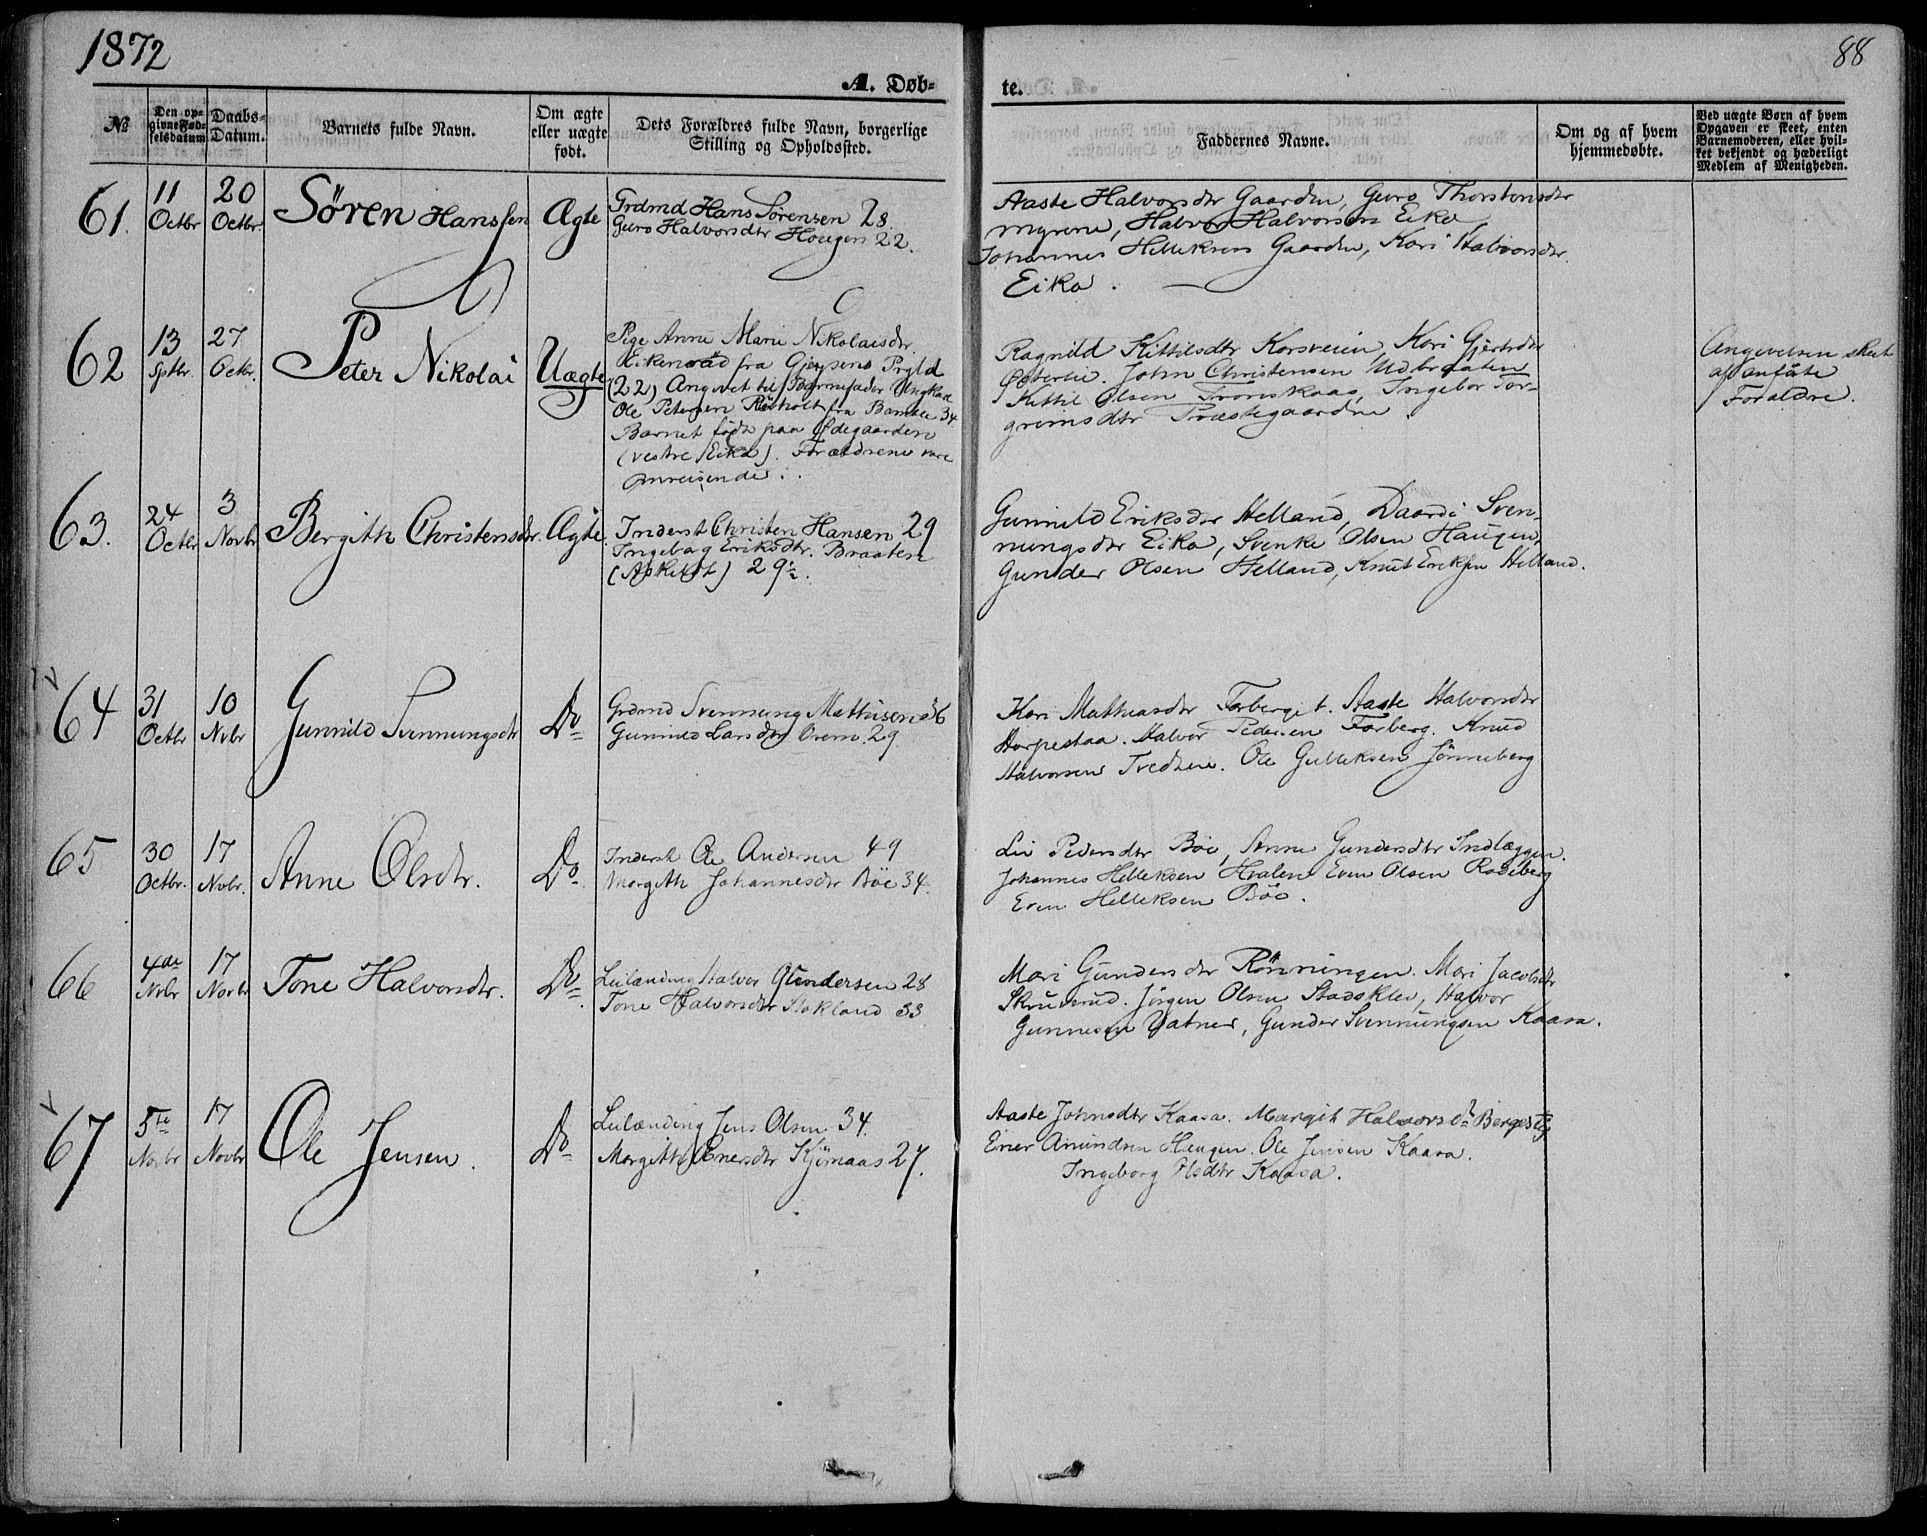 1872
88
A. Døb-
te.
№
Den op-
givne Fød-
selsdatum
Daabs-
Datum.
Barnets fulde Navn.
Om ægte
eller uægte
født.
Dets Forældres fulde Navn, borgerlige
Stilling og Opholdssted.
Faddernes Navne.
Om og af hvem
hjemmedøbte.
Ved uægte Børn af hvem
Opgaven er skeet, enten
Barnemoderen, eller hvil-
ket bekjendt og hæderligt
Medlem af Menigheden.
61.
11
Octbr
20
Octbr
Sören Hanssen
Ægte
Grdmd Hans Sörensen 28.
Guro Halvorsdtr Hougen 22.
Aaste Halvorsdtr Gaarden, Guro Thorstensdtr
myrene, Halvor Halvorsen Eika
Johannes Helleksen Gaarden, Kari Halvorsdtr.
Eika.
62
13
Sptbr.
27
Octbr.
Peter Nikolai
Uægte
Pige Anne Marie Nikolaisdtr.
Eikenræd fra Gjerpens Prgld
(22) Angivet til Barnefader Ungkarl
Ole Petersen fra Bamble 34.
Barnet født paa Ødegaarden
(vestre Eika). Forældrene vare
omreisende.
Ragnild Kittilsdtr Korsveien, Kari Gjertsdtr
Østerlie. John Christensen Udbraaten
Kittil Olsen Tronskaas, Ingebor Tor-
grimsdtr Præstegaarden.
Angivelsen skeet
af anførte
Forældre.
63.
24
Octbr
3
Novbr
Bergith Christensdtr.
Ægte.
Inderst Christen Hansen 29
Ingeborg Eriksdtr. Braaten
29½.
Gunnild Eriksdtr Helland, Daardi Sven-
nungsdtr Eika, Svenke Olsen Haugen,
Gunder Olsen Helland, Knut Eriksen Helland.
64
31
Octbr
10
Nvbr
Gunnild Svennungsdtr
Do
Grdmd Svennung Mathisen 36
Gunnild Larsdtr Orem. 29.
Kari Mathiasdtr Forberg. Aaste Halvorsdtr
Horpestaa. Halvor Pedersen Forberg. Knud
Halvorsen Tvedten. Ole Gulleksen Jönneberg
65
30
Octbr.
17
Nvbr.
Anne Olsdtr.
Do
Inderst Ole Andersen 49
Margith Johannesdtr Böe 34.
Liv Pedersdtr Böe, Anne Gundersdtr Indlæggen.
Johannes Helleksen Hvalen Even Olsen Roseberg
Even Helleksen Böe.
66
4de
Nvbr
17
Novbr
Tone Halvorsdtr.
Do
Leilænding Halvor Gundersen 28
Tone Halvorsdtr Stokland 33
Mari Gundersdtr Rönningen. Mari Jacobsdtr
Skruverud. Jörgen Olsen Stadsklev, Halvor
Gunnesen Vatner, Gunder Svennungsen Kaasa.
67
5te
Novbr
17
Novbr
Ole Jensen.
Do
Leilænding Jens Olsen 34.
Margith Enersdtr Kjömaas 27.
Aaste Johnsdtr Kaasa. Margit Halvorsdr Bergestig
Ener Amundsen Haugen. Ole Jensen Kaasa.
Ingeborg Olsdtr Kaasa.